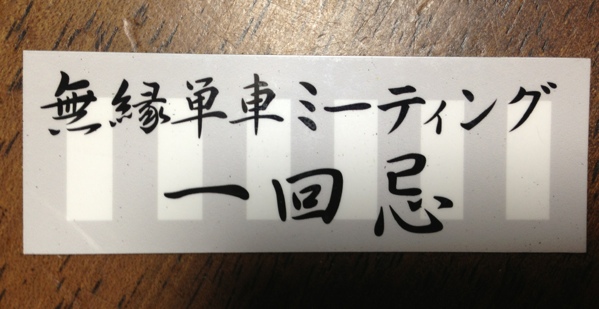 無縁単車ミーティング
一回忌